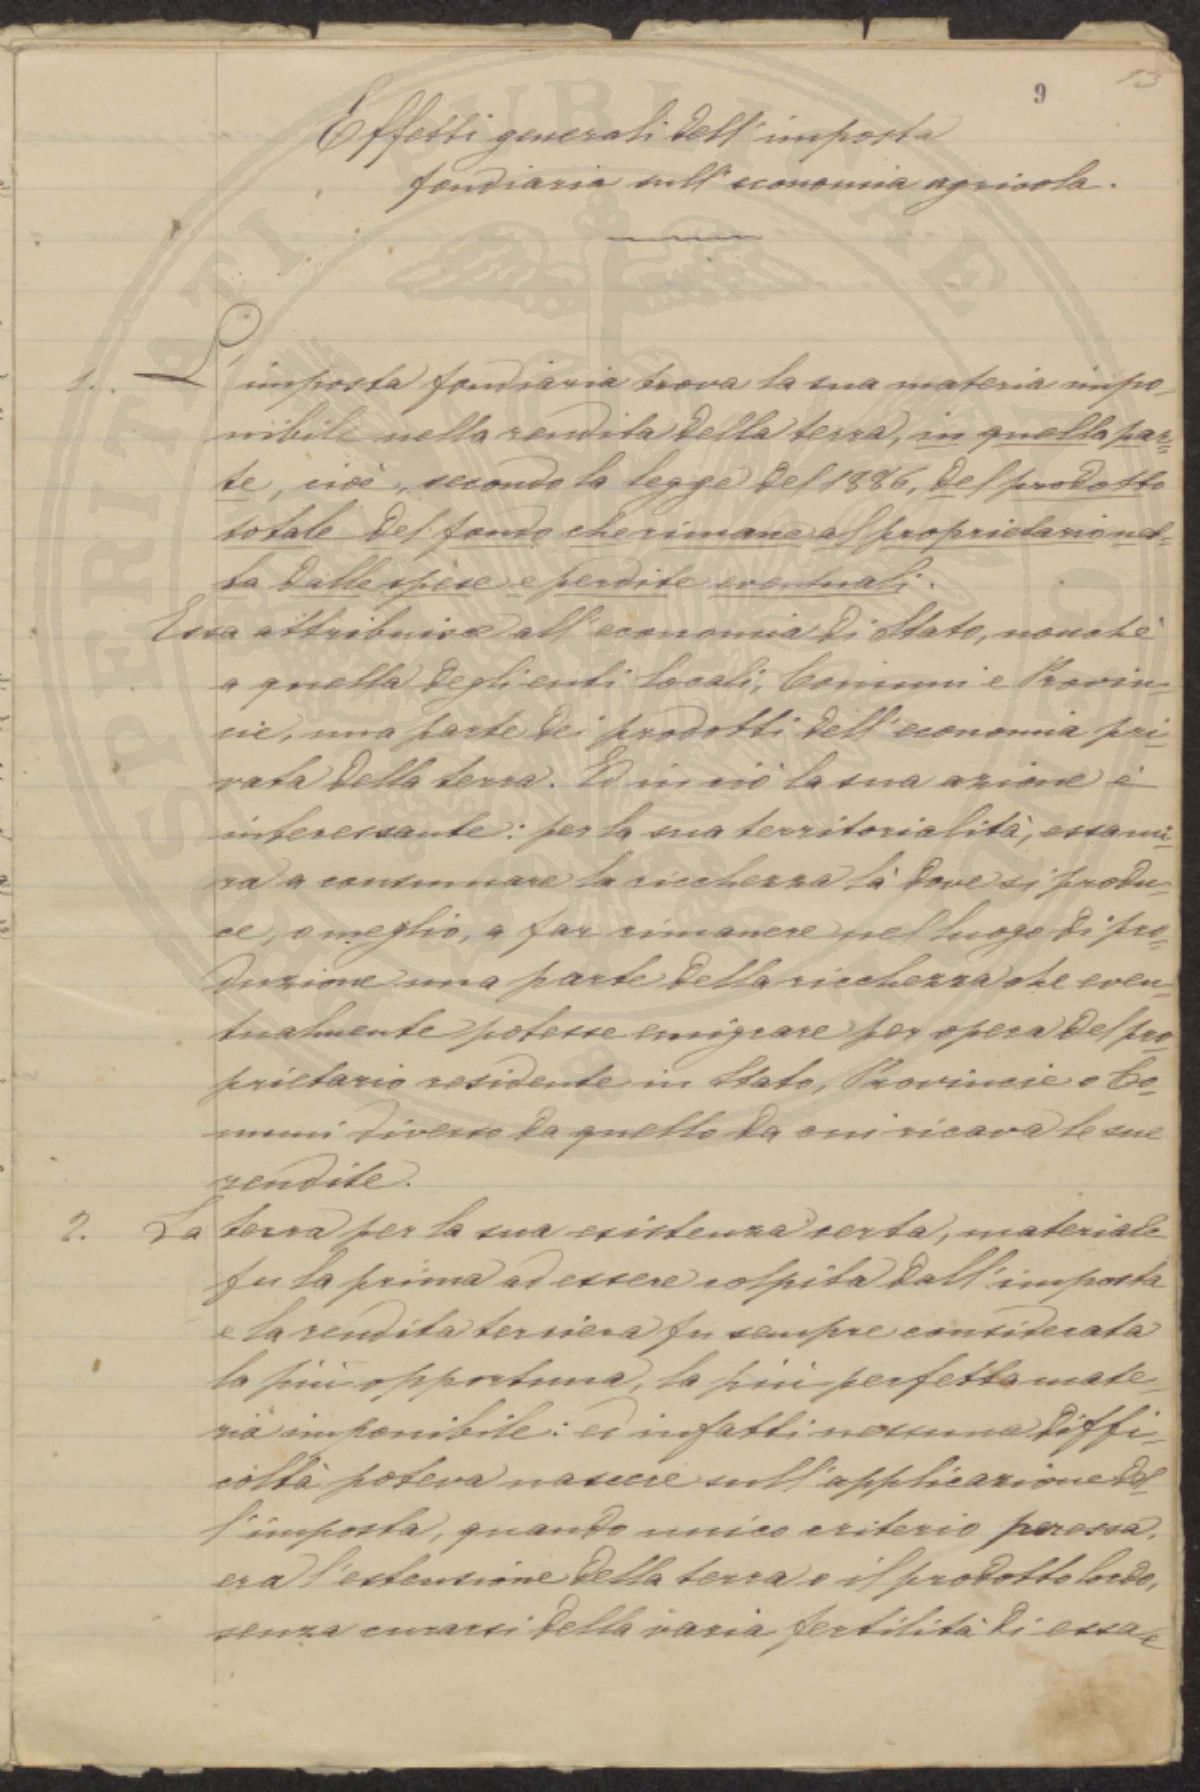 9
13
Effetti generali dell'imposta
fondiaria sull'economia agricola.
1. L'imposta fondiaria trova la sua materia impo-
nibile nella rendita della terra, in quella par-
te, cioè, secondo la legge del 1886, del prodotto
totale del fondo che rimane al proprietario net-
ta dalle spese e perdite eventuali.
Essa attribuisce all'economia di Stato, nonchè
a quella degli enti locali, Comuni e Provin-
cie, una parte dei prodotti dell'economia pri-
vata della terra. Ed in ciò la sua azione è
interessante: per la sua territorialità, essa mi-
ra a consumare la ricchezza là dove si produ-
ce, o meglio, a far rimanere nel luogo di pro-
duzione una parte della ricchezza che even-
tualmente potesse emigrare per opera del pro-
prietario residente in Stato, Provincie o Co-
muni diverso da quello da cui ricava le sue
rendite.
2. La terra per la sua esistenza certa, materiale
fu la prima ad essere colpita dall'imposta
e la rendita terriera fu sempre considerata
la più opportuna, la più perfetta mate-
ria imponibile: ed infatti nessuna diffi-
coltà poteva nascere sull'applicazione del-
l'imposta, quando unico criterio per essa,
era l'estensione della terra o il prodotto lordo,
senza curarsi della varia fertilità di essa e
PUBLICAE
PROSPERITATI